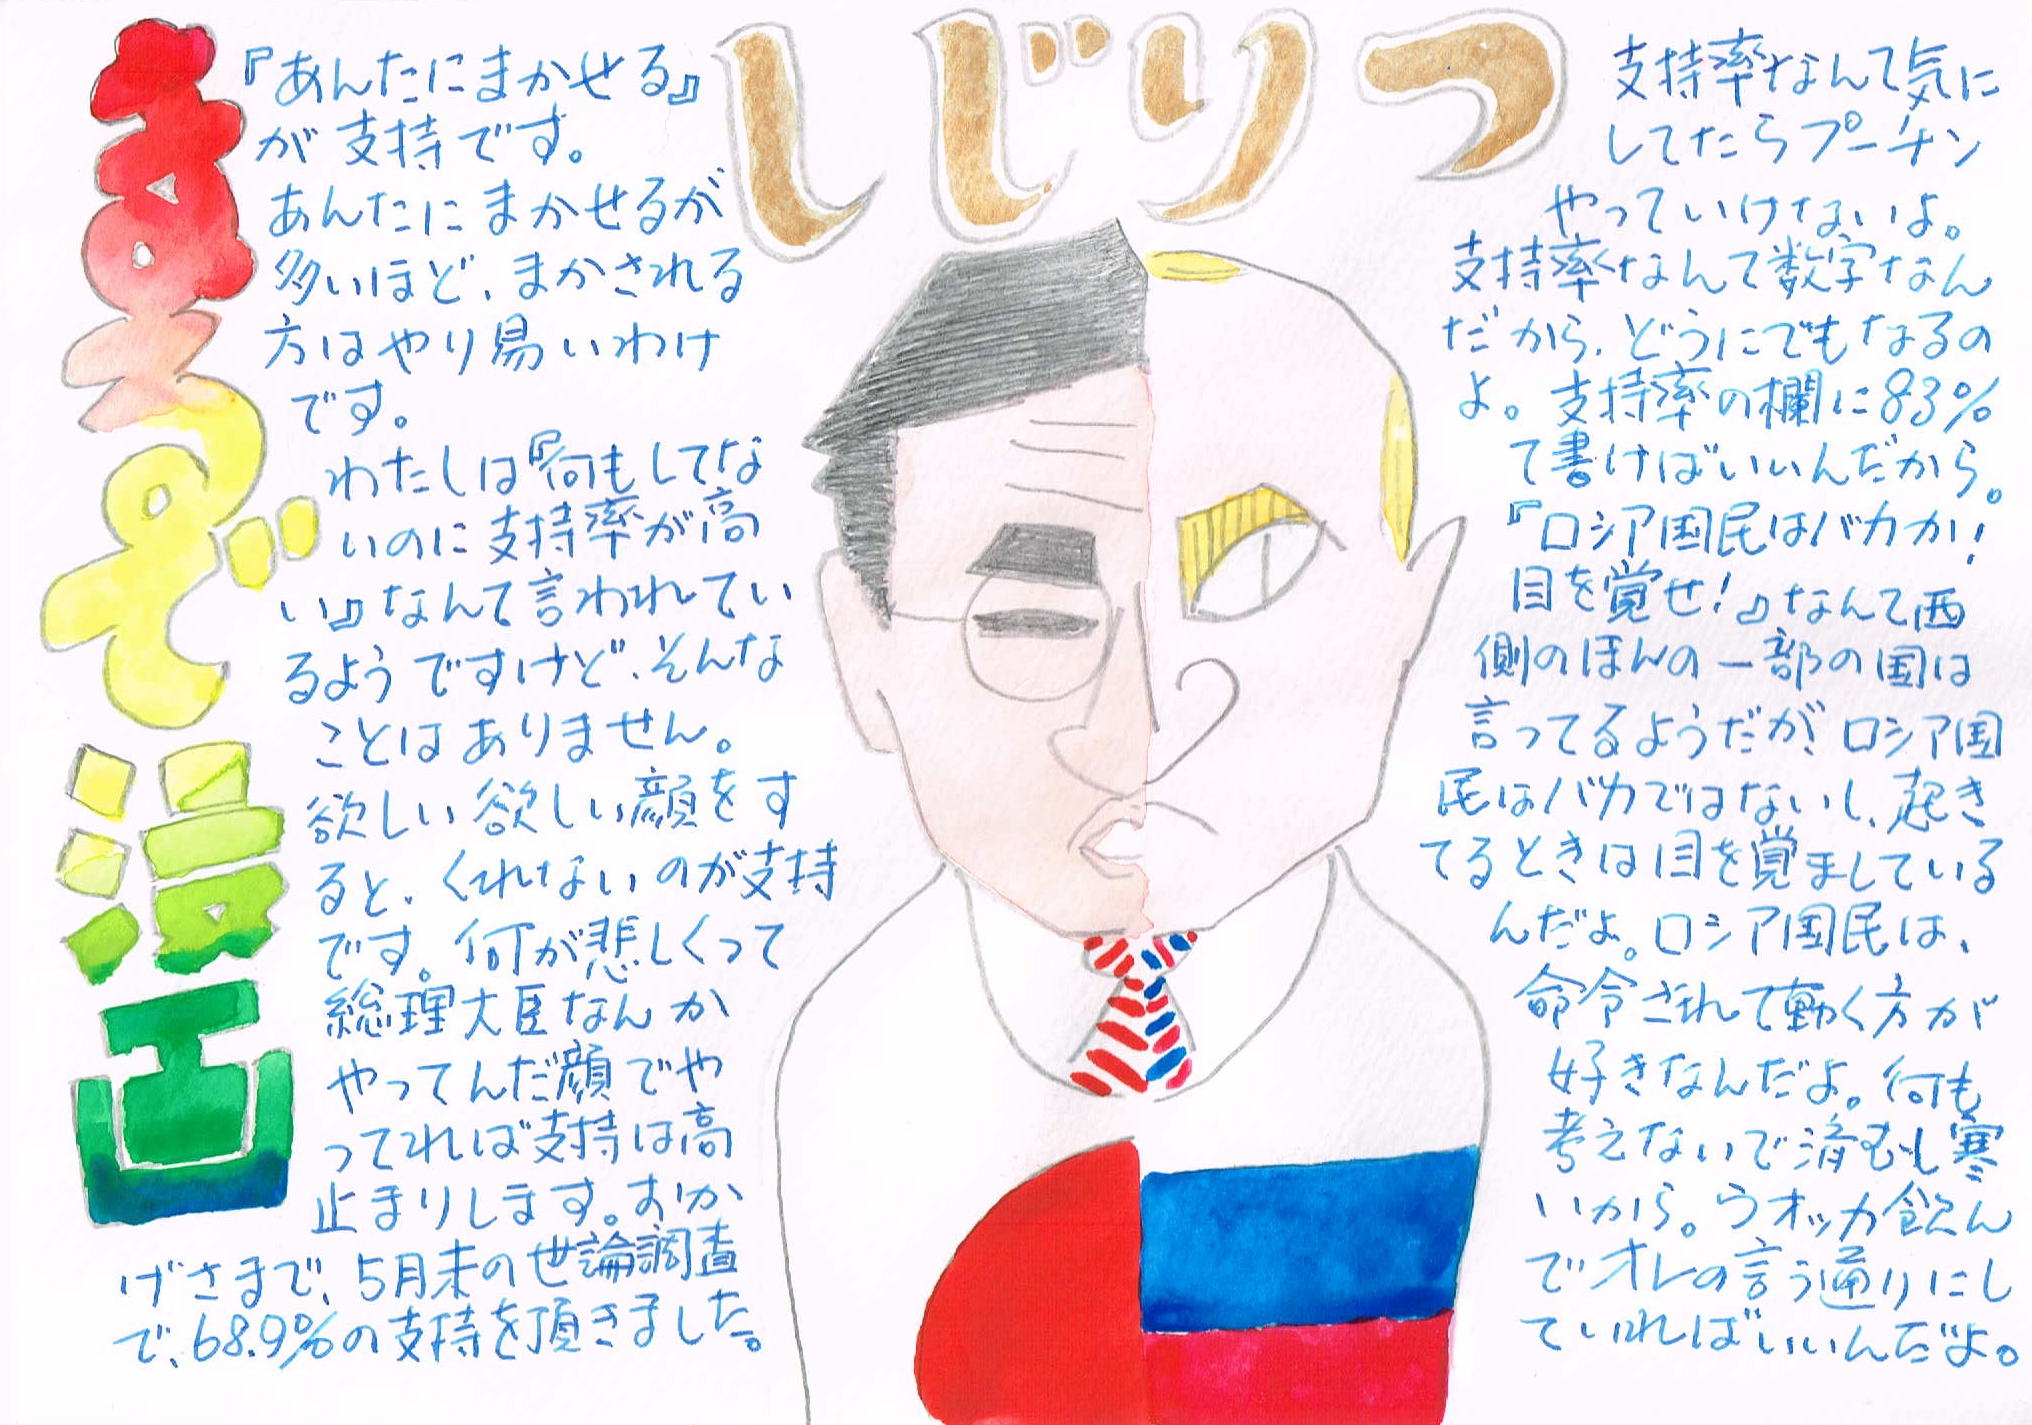 漫画
しじりつ
『あんたにまかせる』
が支持です。
あんたにまかせるが
多いほど、まかされる
方はやり易いわけ
です。
わたしは『何もしてな
いのに支持率が高
い』なんて言われてい
るようですけど、そんな
ことはありません。
欲しい欲しい顔をす
ると、くれないのが支持
です。何が悲しくって
総理大臣なんか
やってんだ顔でや
ってれば支持は高
止まりします。おか
げさまで、5月末の世論調査
で、68.9%の支持を頂きました。
支持率なんて気に
してたらプーチン
やっていけないよ。
支持率なんて数字なん
だから、どうにでもなるの
よ。支持率の欄に83%
て書けばいいんだから。
『ロシア国民はバカか!
目を覚せ!』なんて西
側のほんの一部の国は
言ってるようだが、ロシア国
民はバカではないし、起き
てるときは目を覚ましている
んだよ。ロシア国民は、
命令されて動く方が
好きなんだよ。何も
考えないで済むし寒
いから。ウオッカ飲ん
でオレの言う通りにし
ていればいいんだよ。